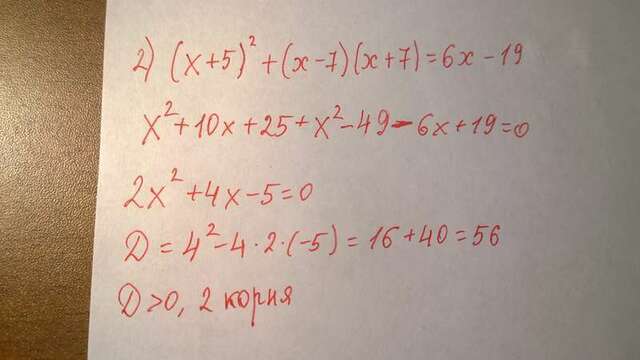 2) (x+5)² + (x-7)(x+7) = 6x - 19
x² + 10x + 25 + x² - 49 - 6x + 19 = 0
2x² + 4x - 5 = 0
D = 4² - 4 · 2 · (-5) = 16 + 40 = 56
D > 0, 2 корня